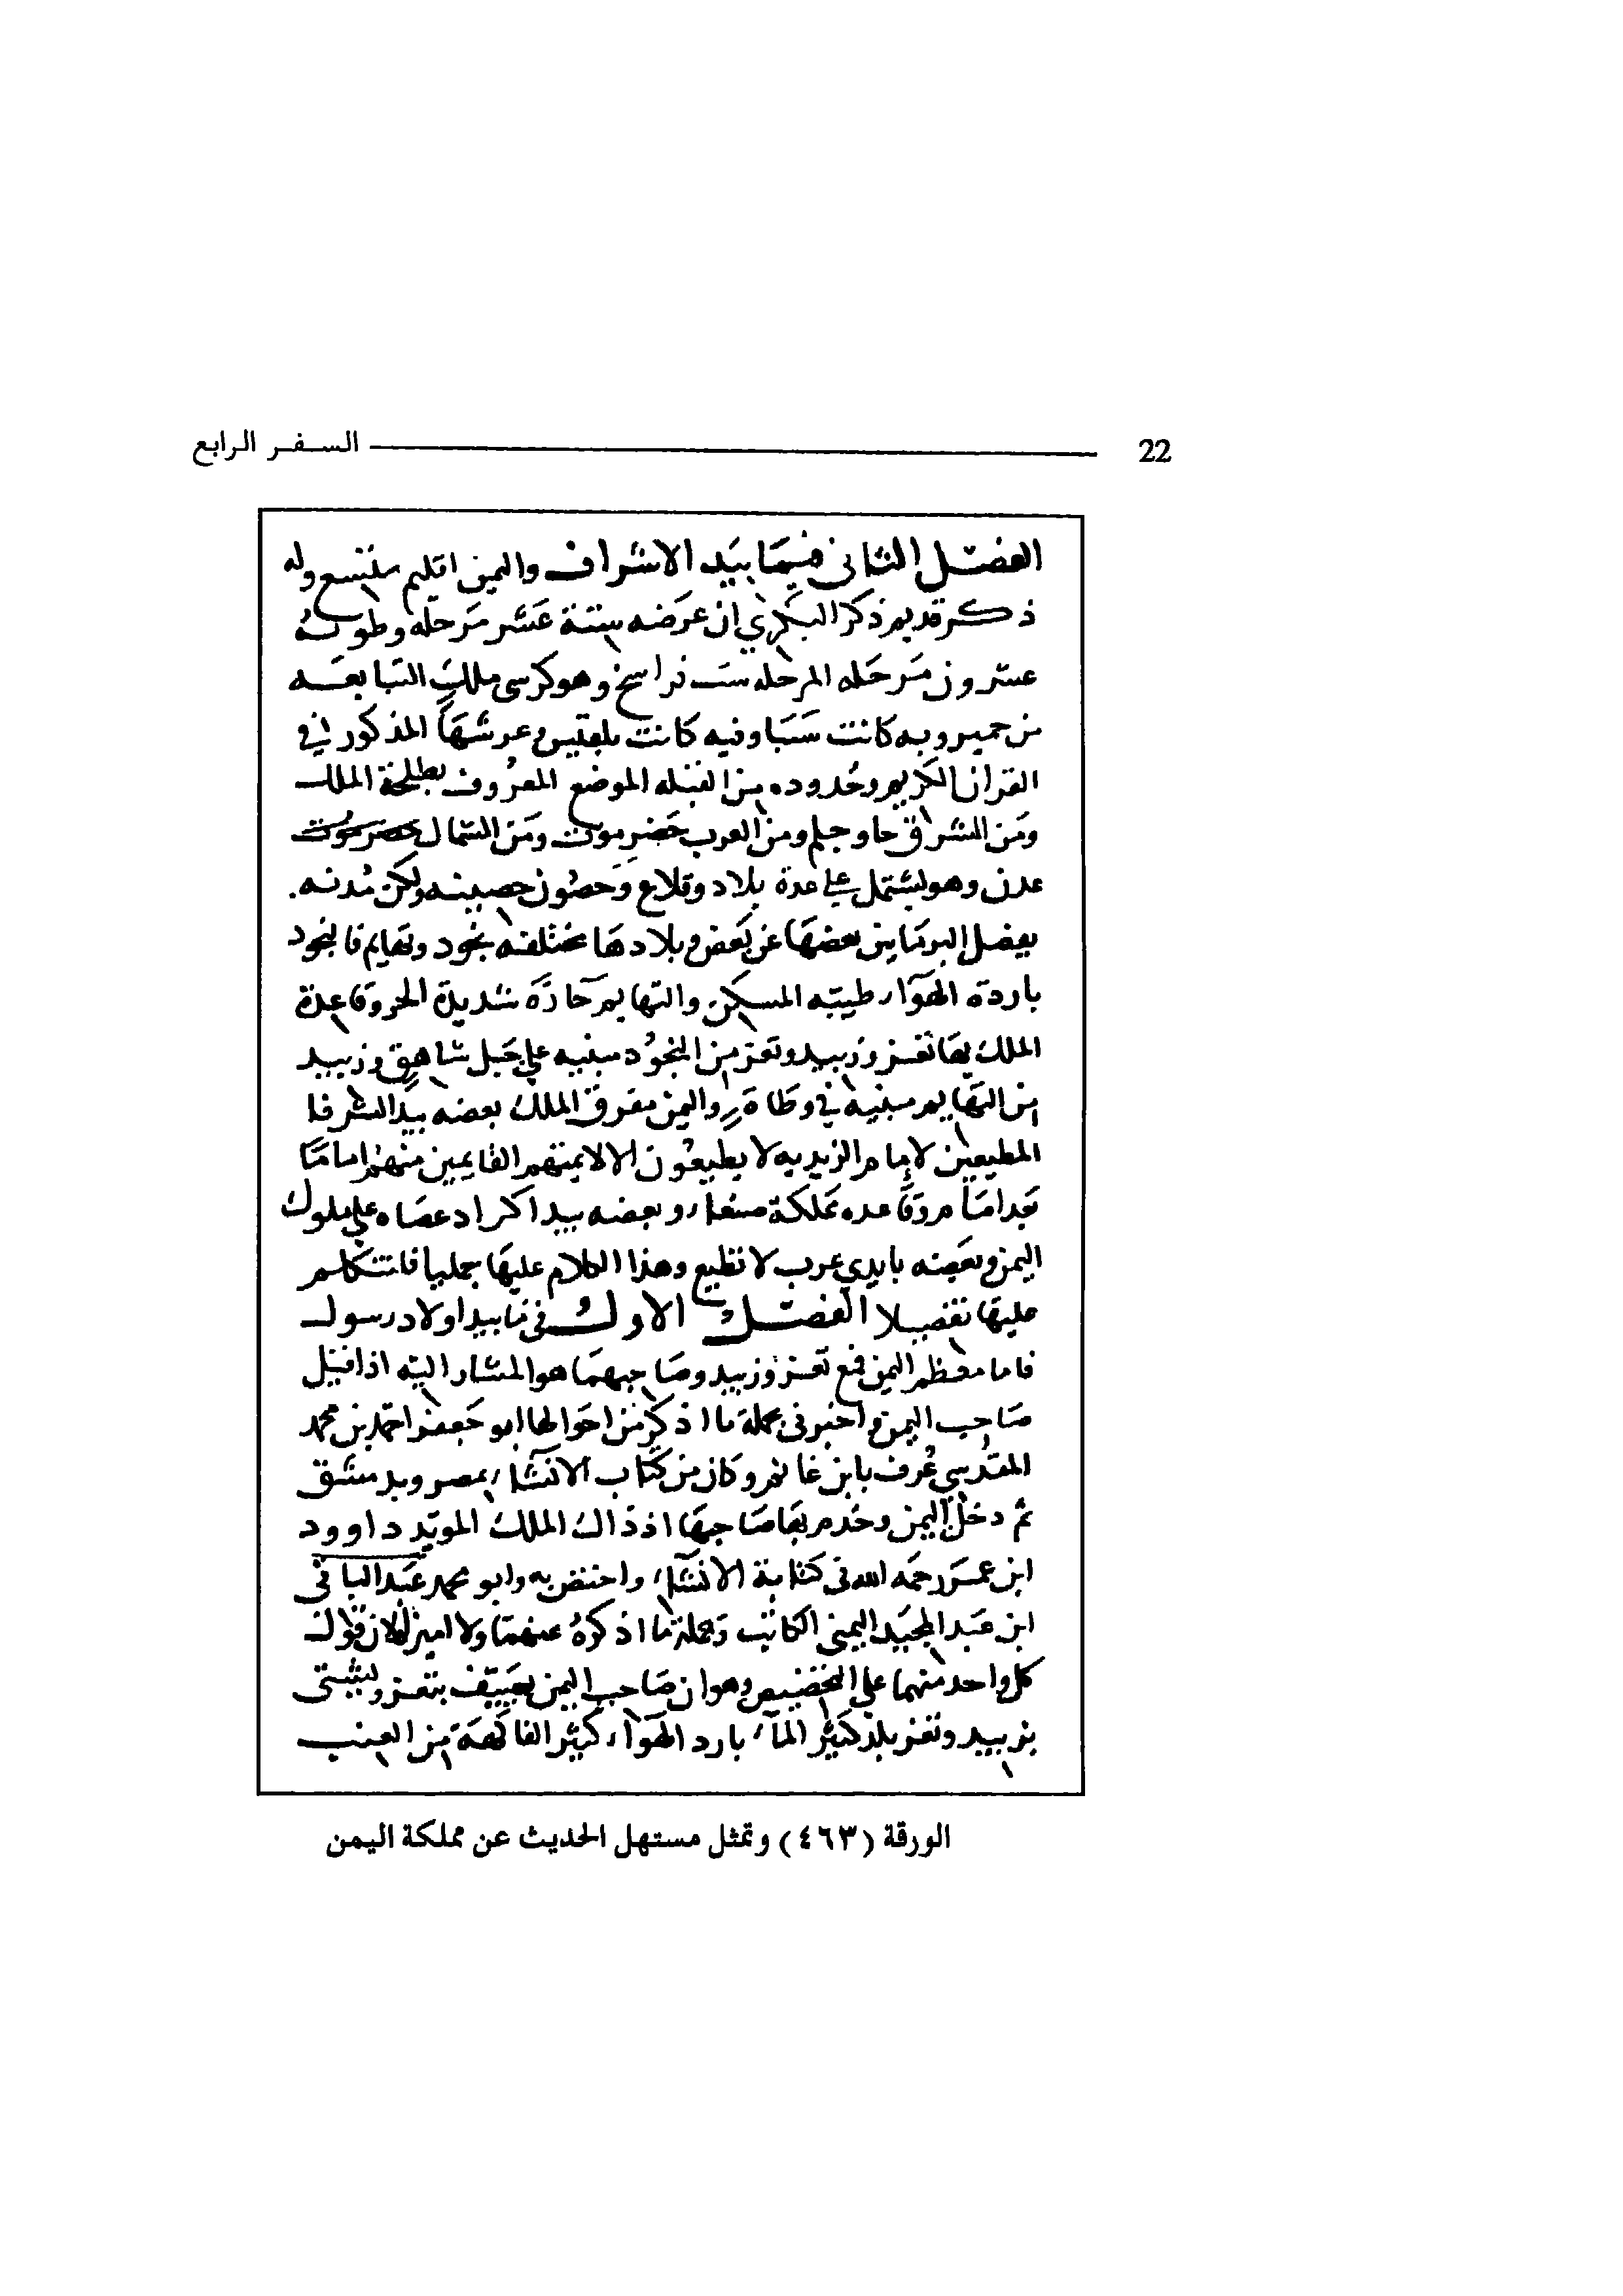 السفر الرابع 22
الفصل الثانى فيما بيد الاشراف واليمن اقليم متسع وله
ذكر قديم ذكر البكري ان عرضه ستة عشر مرحله وطوله
عشرون مرحله المرحله ست فراسخ وهو كرسى ملك التبابعه
من حمير وبه كانت سبا وفيه كانت بلقيس وعرشها المذكور في
القران الكريم وحدوده من القبله الموضع المعروف بطلحة الملك
ومن الشرق حا وحلم ومن الغرب حضرموت ومن الشمال حضرموت
عدن وهو يشتمل على عدة بلاد وقلاع وحصون حصينه ولكن مدنه
يفصل البر ما بين بعضها عن بعض وبلادها مختلفه نجود وتهايم فالنجود
باردة الهوآء طيبه المسكن والتهايم حارة شديدة الحر وقاعدة
الملك بها تعز وزبيد وتعز من النجود مبنيه على جبل شاهق وزبيد
من التهايم مبنية في وطاة واليمن مفرق الملك بعضه بيد الشرفا
المطيعين لإمام الزيديه لا يطيعون الا لايمتهم القايمين منهم اماما
بعد امام وقاعده مملكة صنعاء وبعضه بيد اكراد عصاه على ملوك
اليمن وبعضه بايدي عرب لا تطيع وهذا الكلام عليها جمليا فانتكلم
عليها تفصيلا الفصل الاول في ما بيد اولاد رسول
فاما معظم اليمن فمع تعز وزبيد وصاحبهما هو المشار اليه اذا قيل
صاحب اليمن واخبرنى بجملة ما اذكر من احوالها ابو جعفر احمد بن محمد
المقدسي عُرف بابن غانم وكان من كتاب الانشاء بمصر وبدمشق
ثم دخل اليمن وخدم بها صاحبها اذ ذاك الملك المويد داوود
ابن عمر رحمه الله فى كتابة الانشآء واختص به وابو محمد عبد الباقى
ابن عبد المجيد اليمنى الكاتب وجملة ما اذكره عنهما ولا اميز الان قول
كل واحد منهما على التخصيص وهو ان صاحب اليمن يصيف بتعز ويشتى
بزبيد وتعز بلد كثير المآء بارد الهوآء كثير الفاكهة من العنب
الورقة (٤٦٣) وتمثل مستهل الحديث عن مملكة اليمن